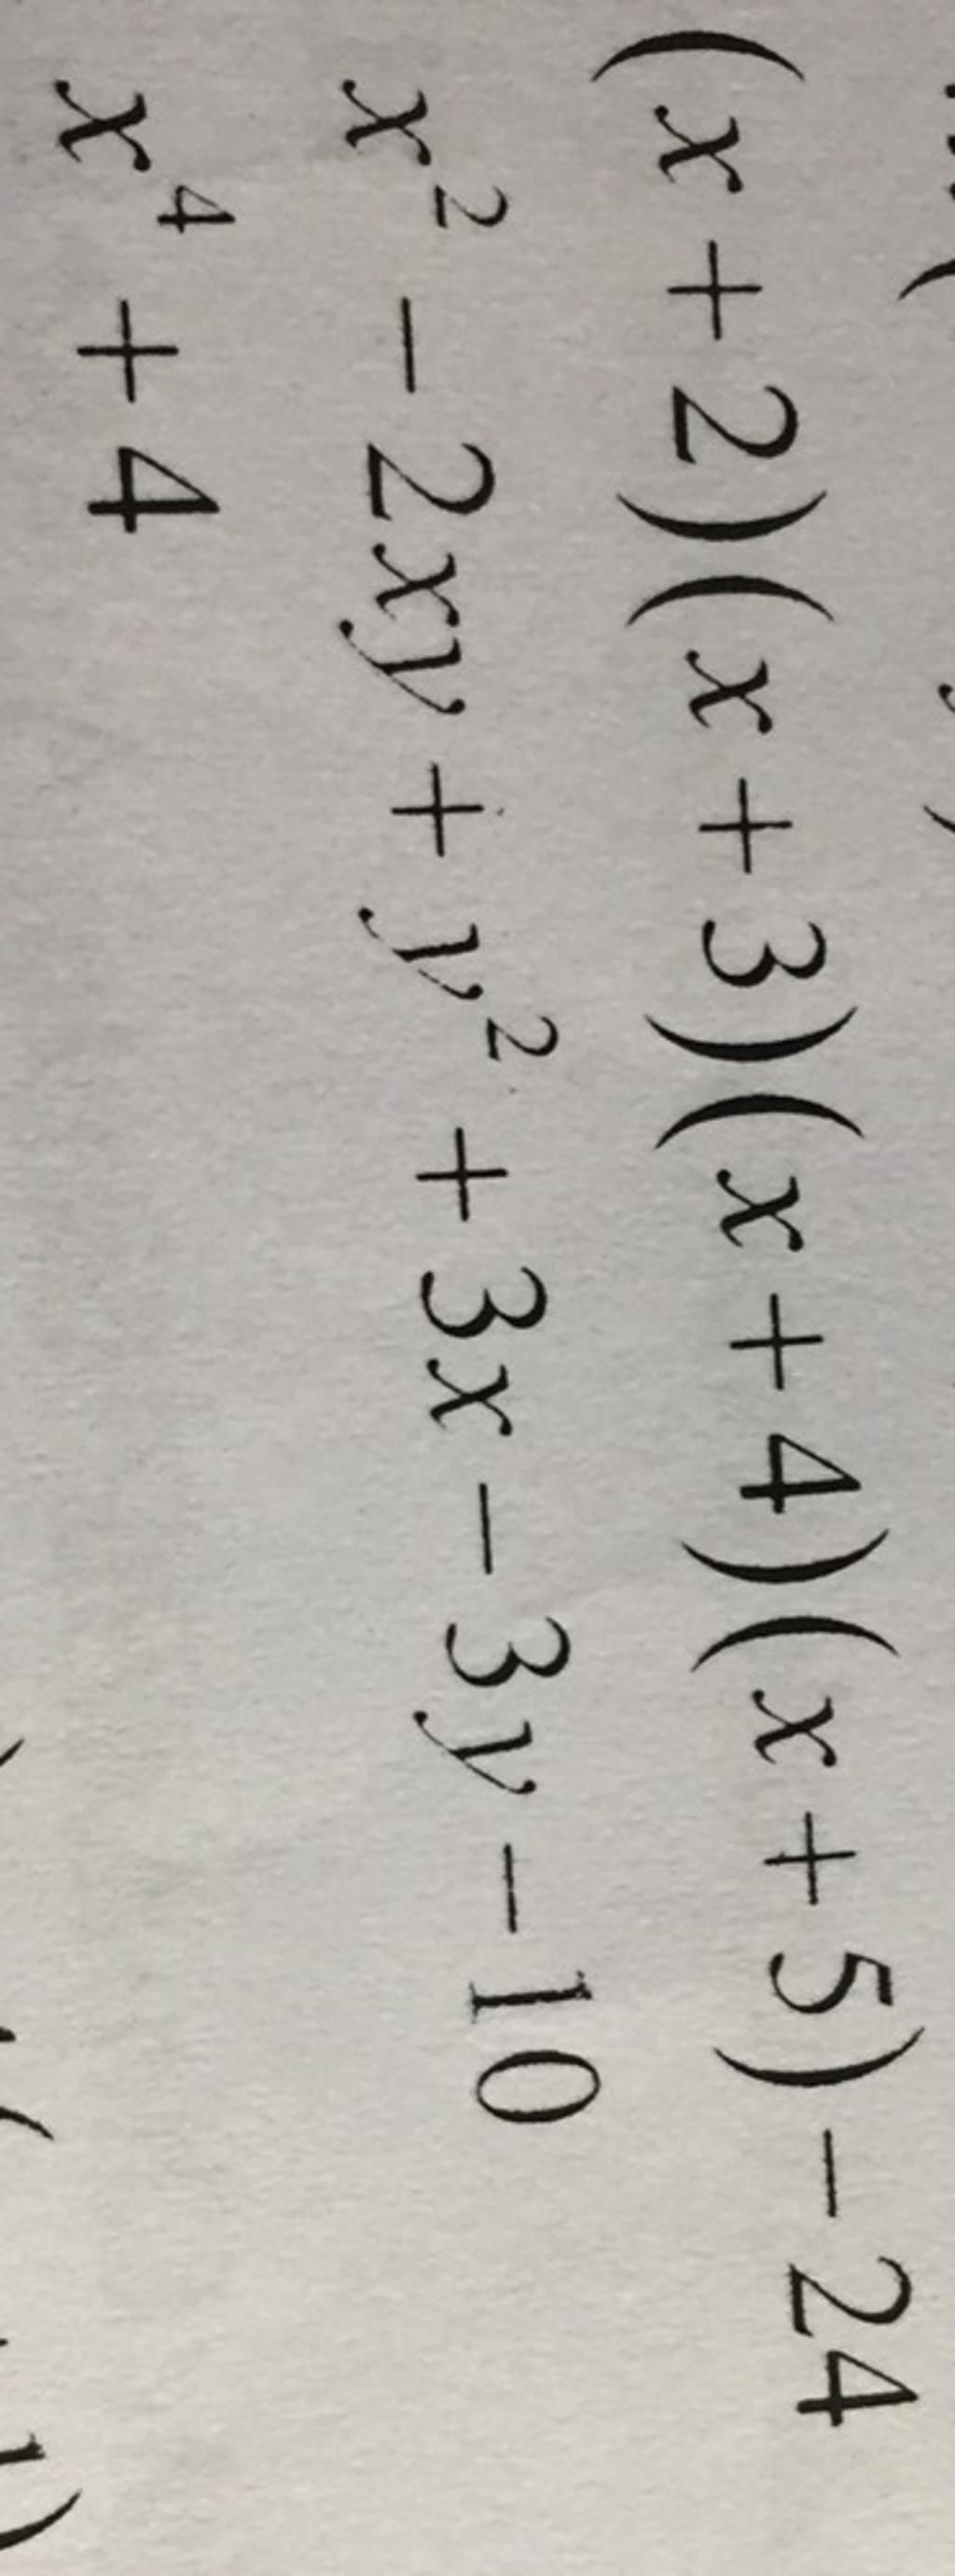 (x + 2)(x + 3)(x + 4)(x + 5) − 24
x² − 2xy + y² + 3x − 3y − 10
x⁴ + 4